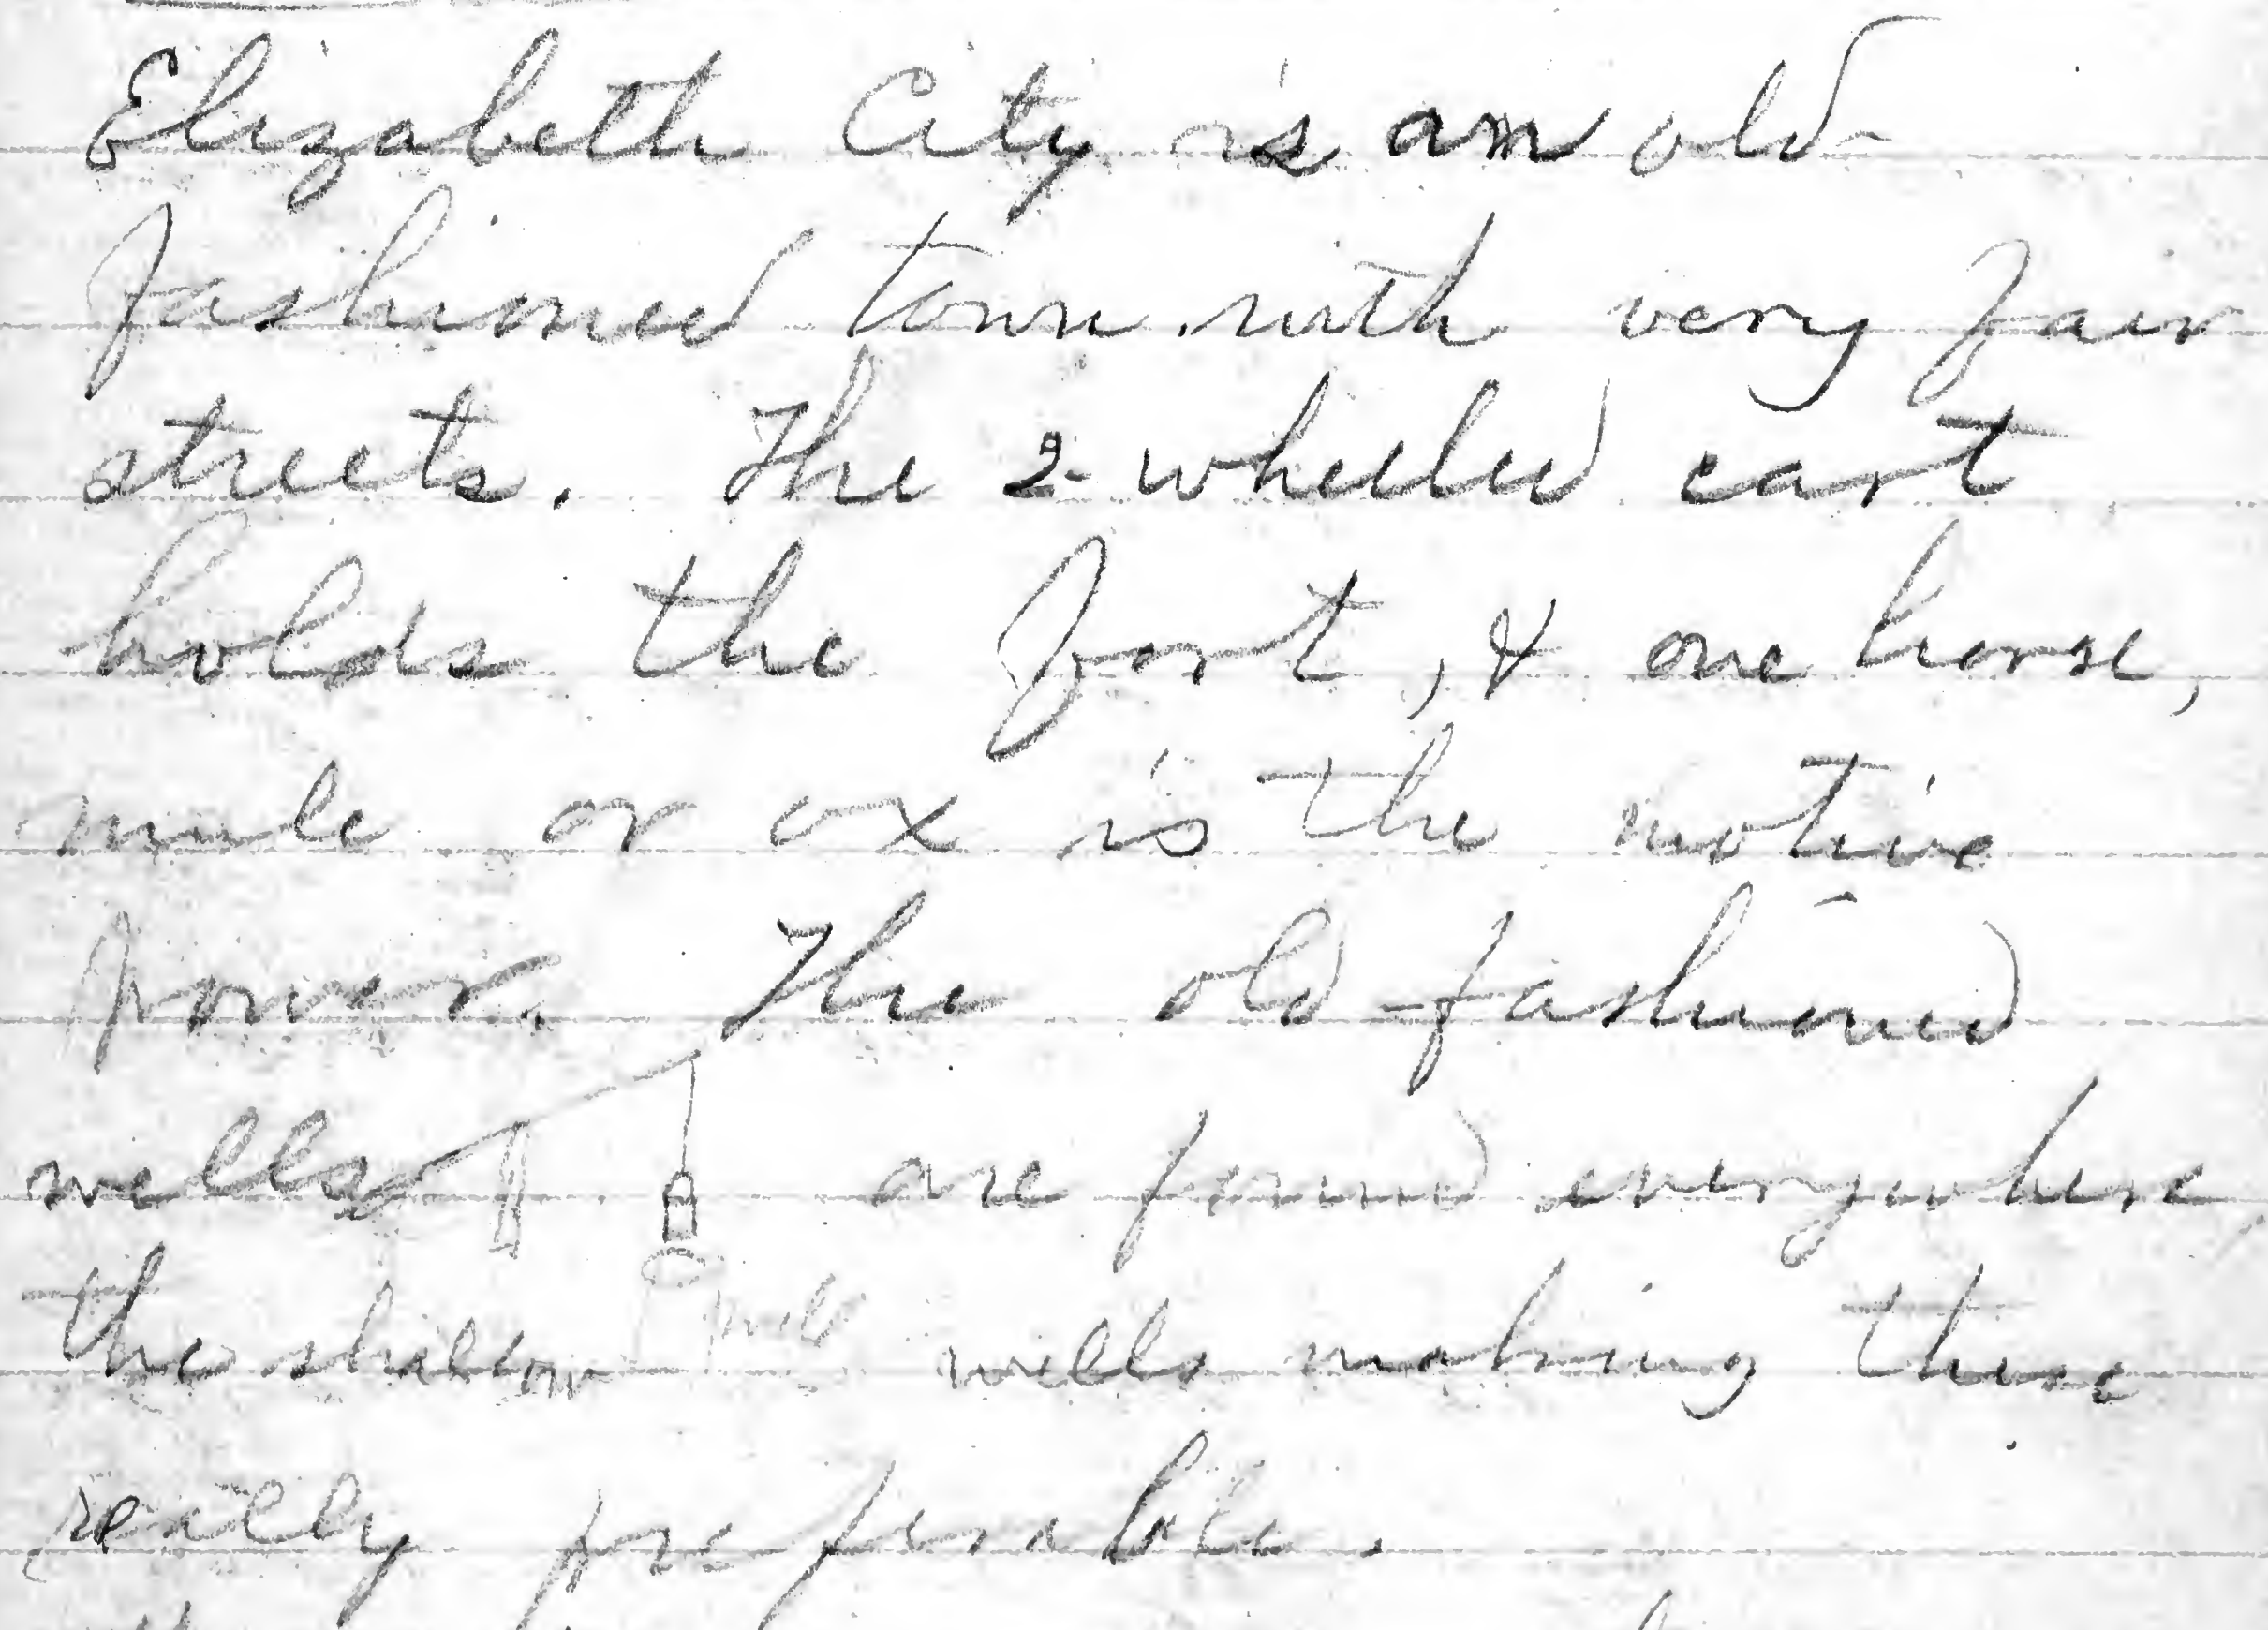 Elizabeth City is an old
fashioned town with very fair
streets. The 2-wheeled cart
holds the fort, & one horse,
mule or ox is the motive
power. The old-fashioned
wells are found everywhere,
the shallow well wells making these
really preferable.